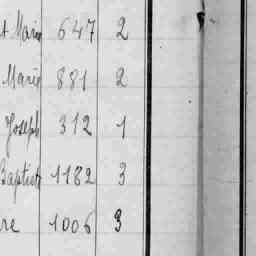 t Marie 647 2
Marie 881 2
Joseph 312 1
Baptiste 1182 3
re 1006 3